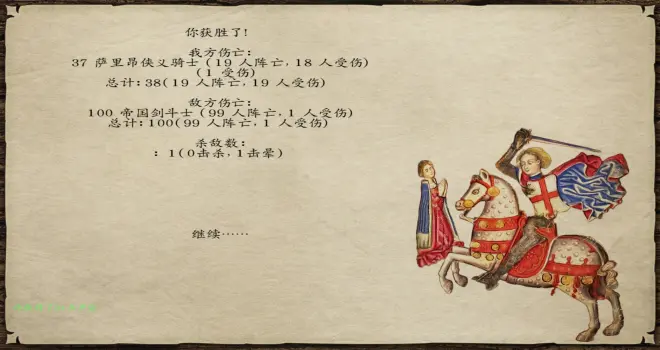 你获胜了!
我方伤亡:
37 萨里昂侠义骑士 (19 人阵亡, 18 人受伤)
(1 受伤)
总计: 38(19 人阵亡, 19 人受伤)
敌方伤亡:
100 帝国剑斗士 (99 人阵亡, 1 人受伤)
总计: 100(99 人阵亡, 1 人受伤)
杀敌数:
: 1(0击杀, 1击晕)
继续……